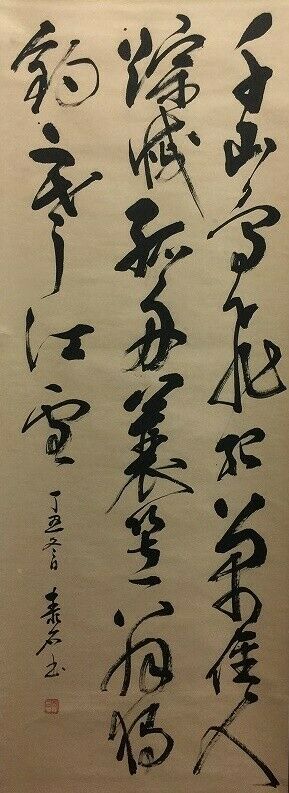 千山鳥飛絕萬徑人
踪滅孤舟蓑笠翁獨
釣寒江雪
丁丑冬日 石书